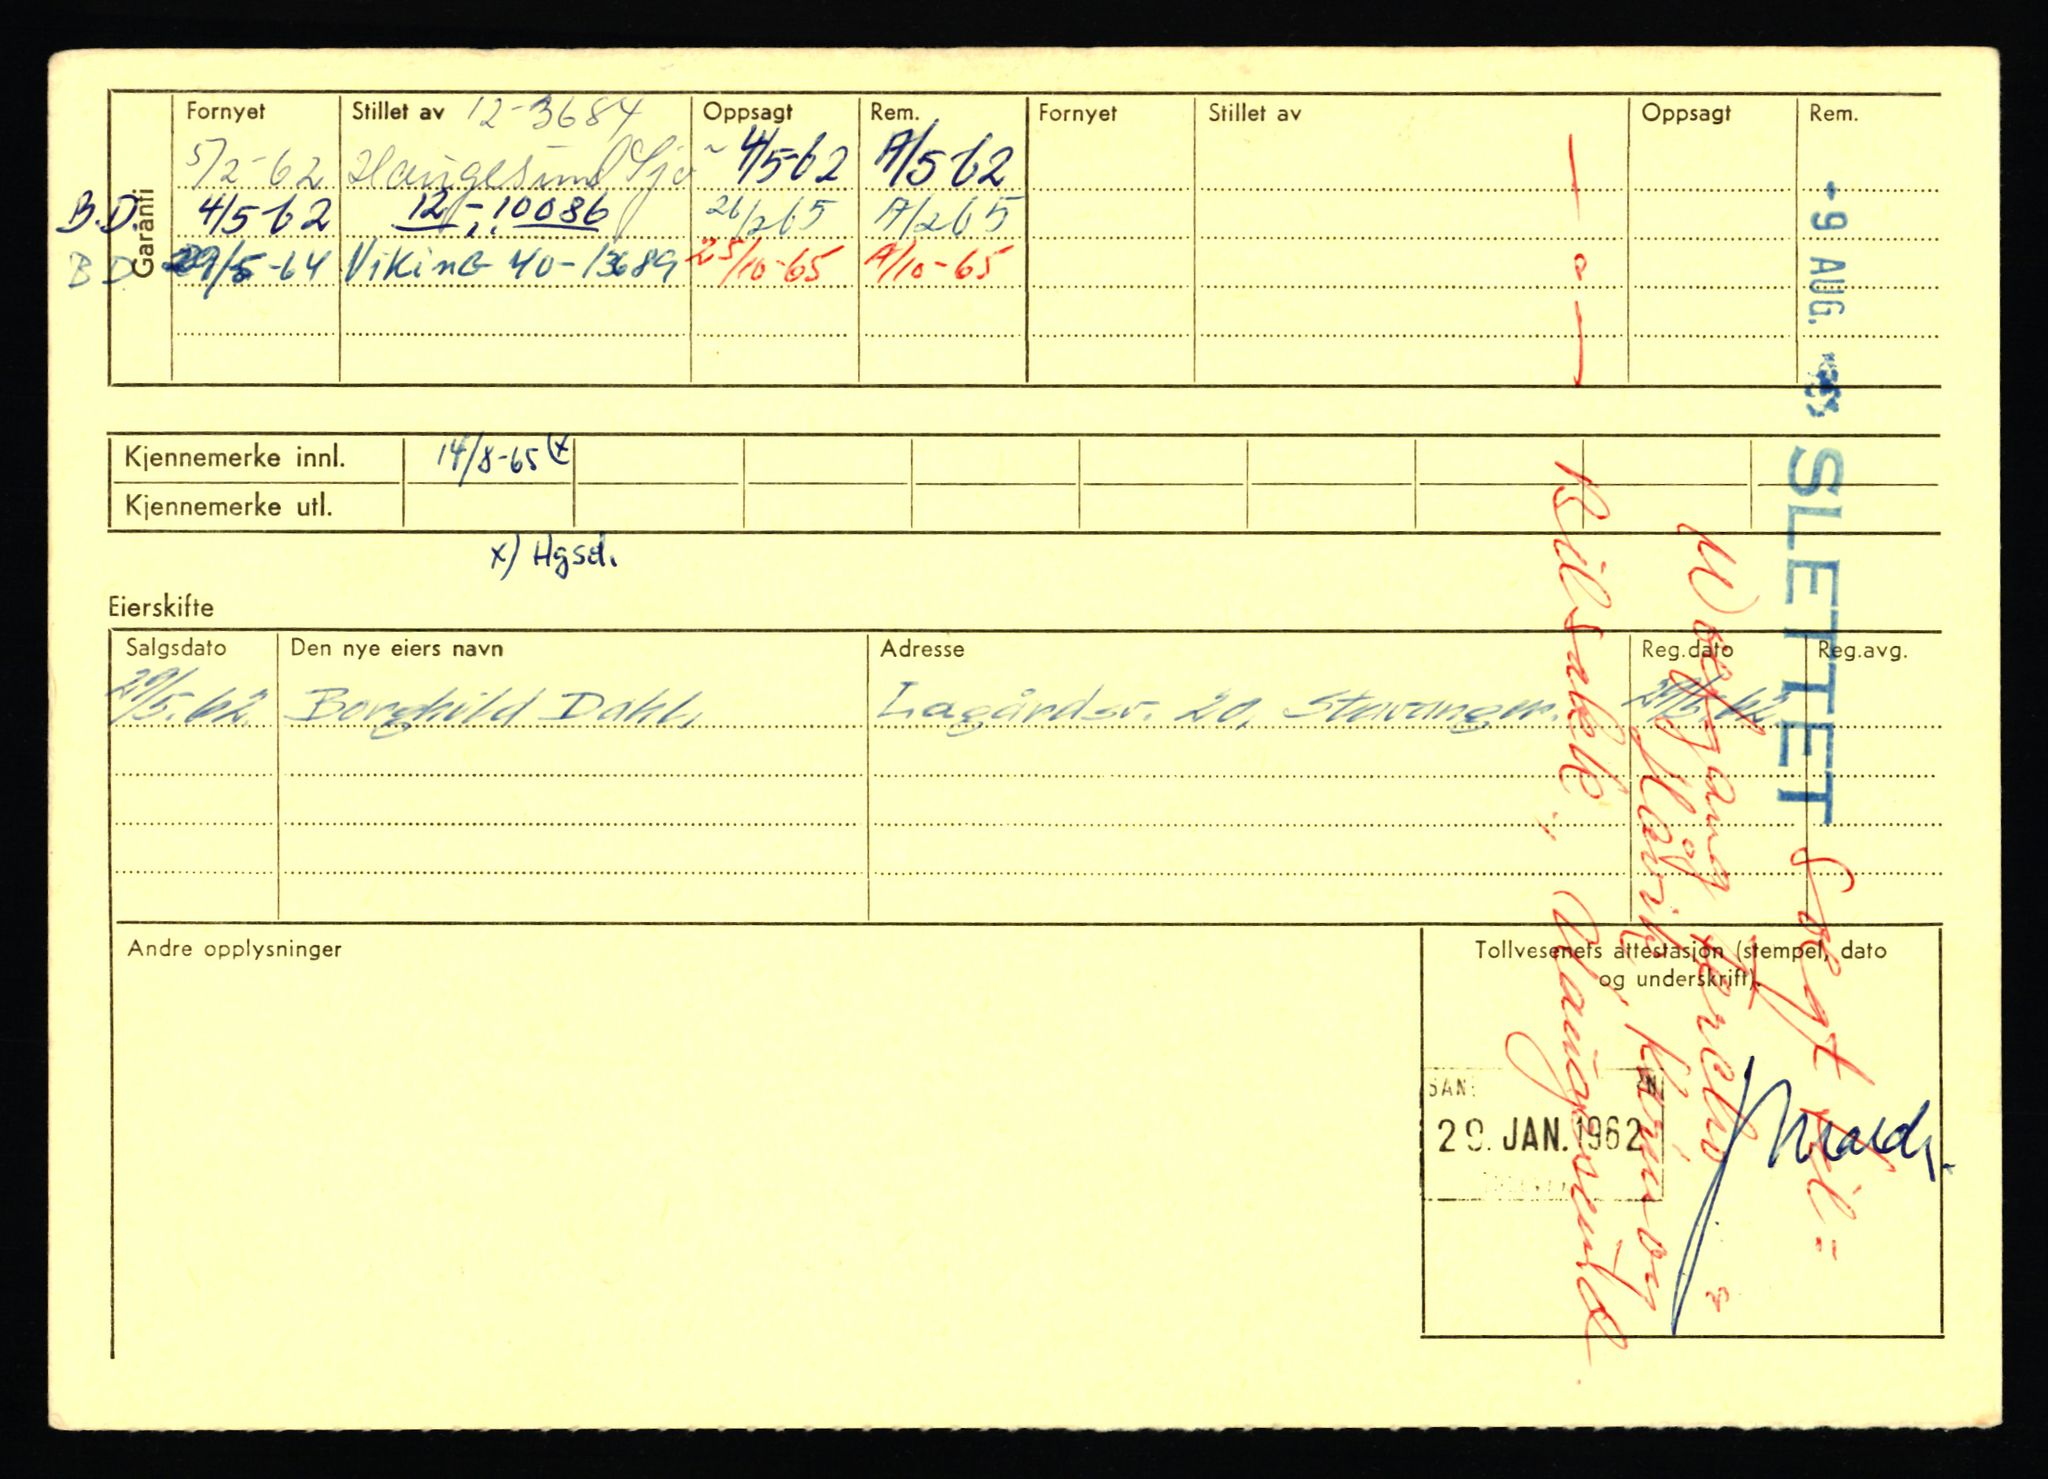 Garanti
Fornyet Stillet av 12-3684 Oppsagt Rem. Fornyet Stillet av Oppsagt Rem.
5/2-62 Haugesund Sjø 4/5-62 A/5-62
B.D. 4/5-62 12-10086 26/2 65 A/2 65
B D 29/5-64 Viking 40-13689 25/10-65 A/10-65
- 9 AUG.
SLETTET
Kjennemerke innl. 14/8-65 (x
Kjennemerke utl.
x) Hgsd.
Eierskifte
Salgsdato Den nye eiers navn Adresse Reg.dato Reg.avg.
29/5.62. Borghild Dahl, Lagårdsv. 20, Stavanger. 29/5.62
Andre opplysninger
Tollvesenets attestasjon (stempel, dato
og underskrift).
SAN
29. JAN. 1962
Solgt til =
Wolfgang
Håvik, Karmøy
Bilsakk. Haugesund
— a —